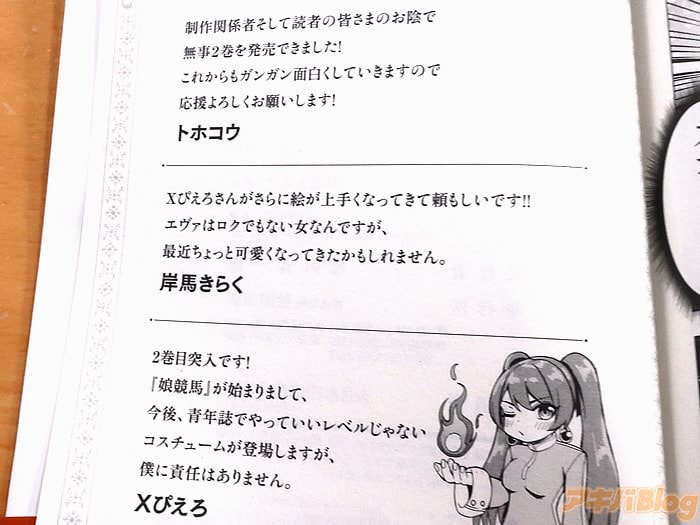 制作関係者そして読者の皆さまのお陰で
無事2巻を発売できました!
これからもガンガン面白くしていきますので
応援よろしくお願いします!
トホコウ
Xぴえろさんがさらに絵が上手くなってきて頼もしいです!!
エヴァはロクでもない女なんですが、
最近ちょっと可愛くなってきたかもしれません。
岸馬きらく
2巻目突入です!
『娘競馬』が始まりまして、
今後、青年誌でやっていいレベルじゃない
コスチュームが登場しますが、
僕に責任はありません。
Xぴえろ
アキバBlog